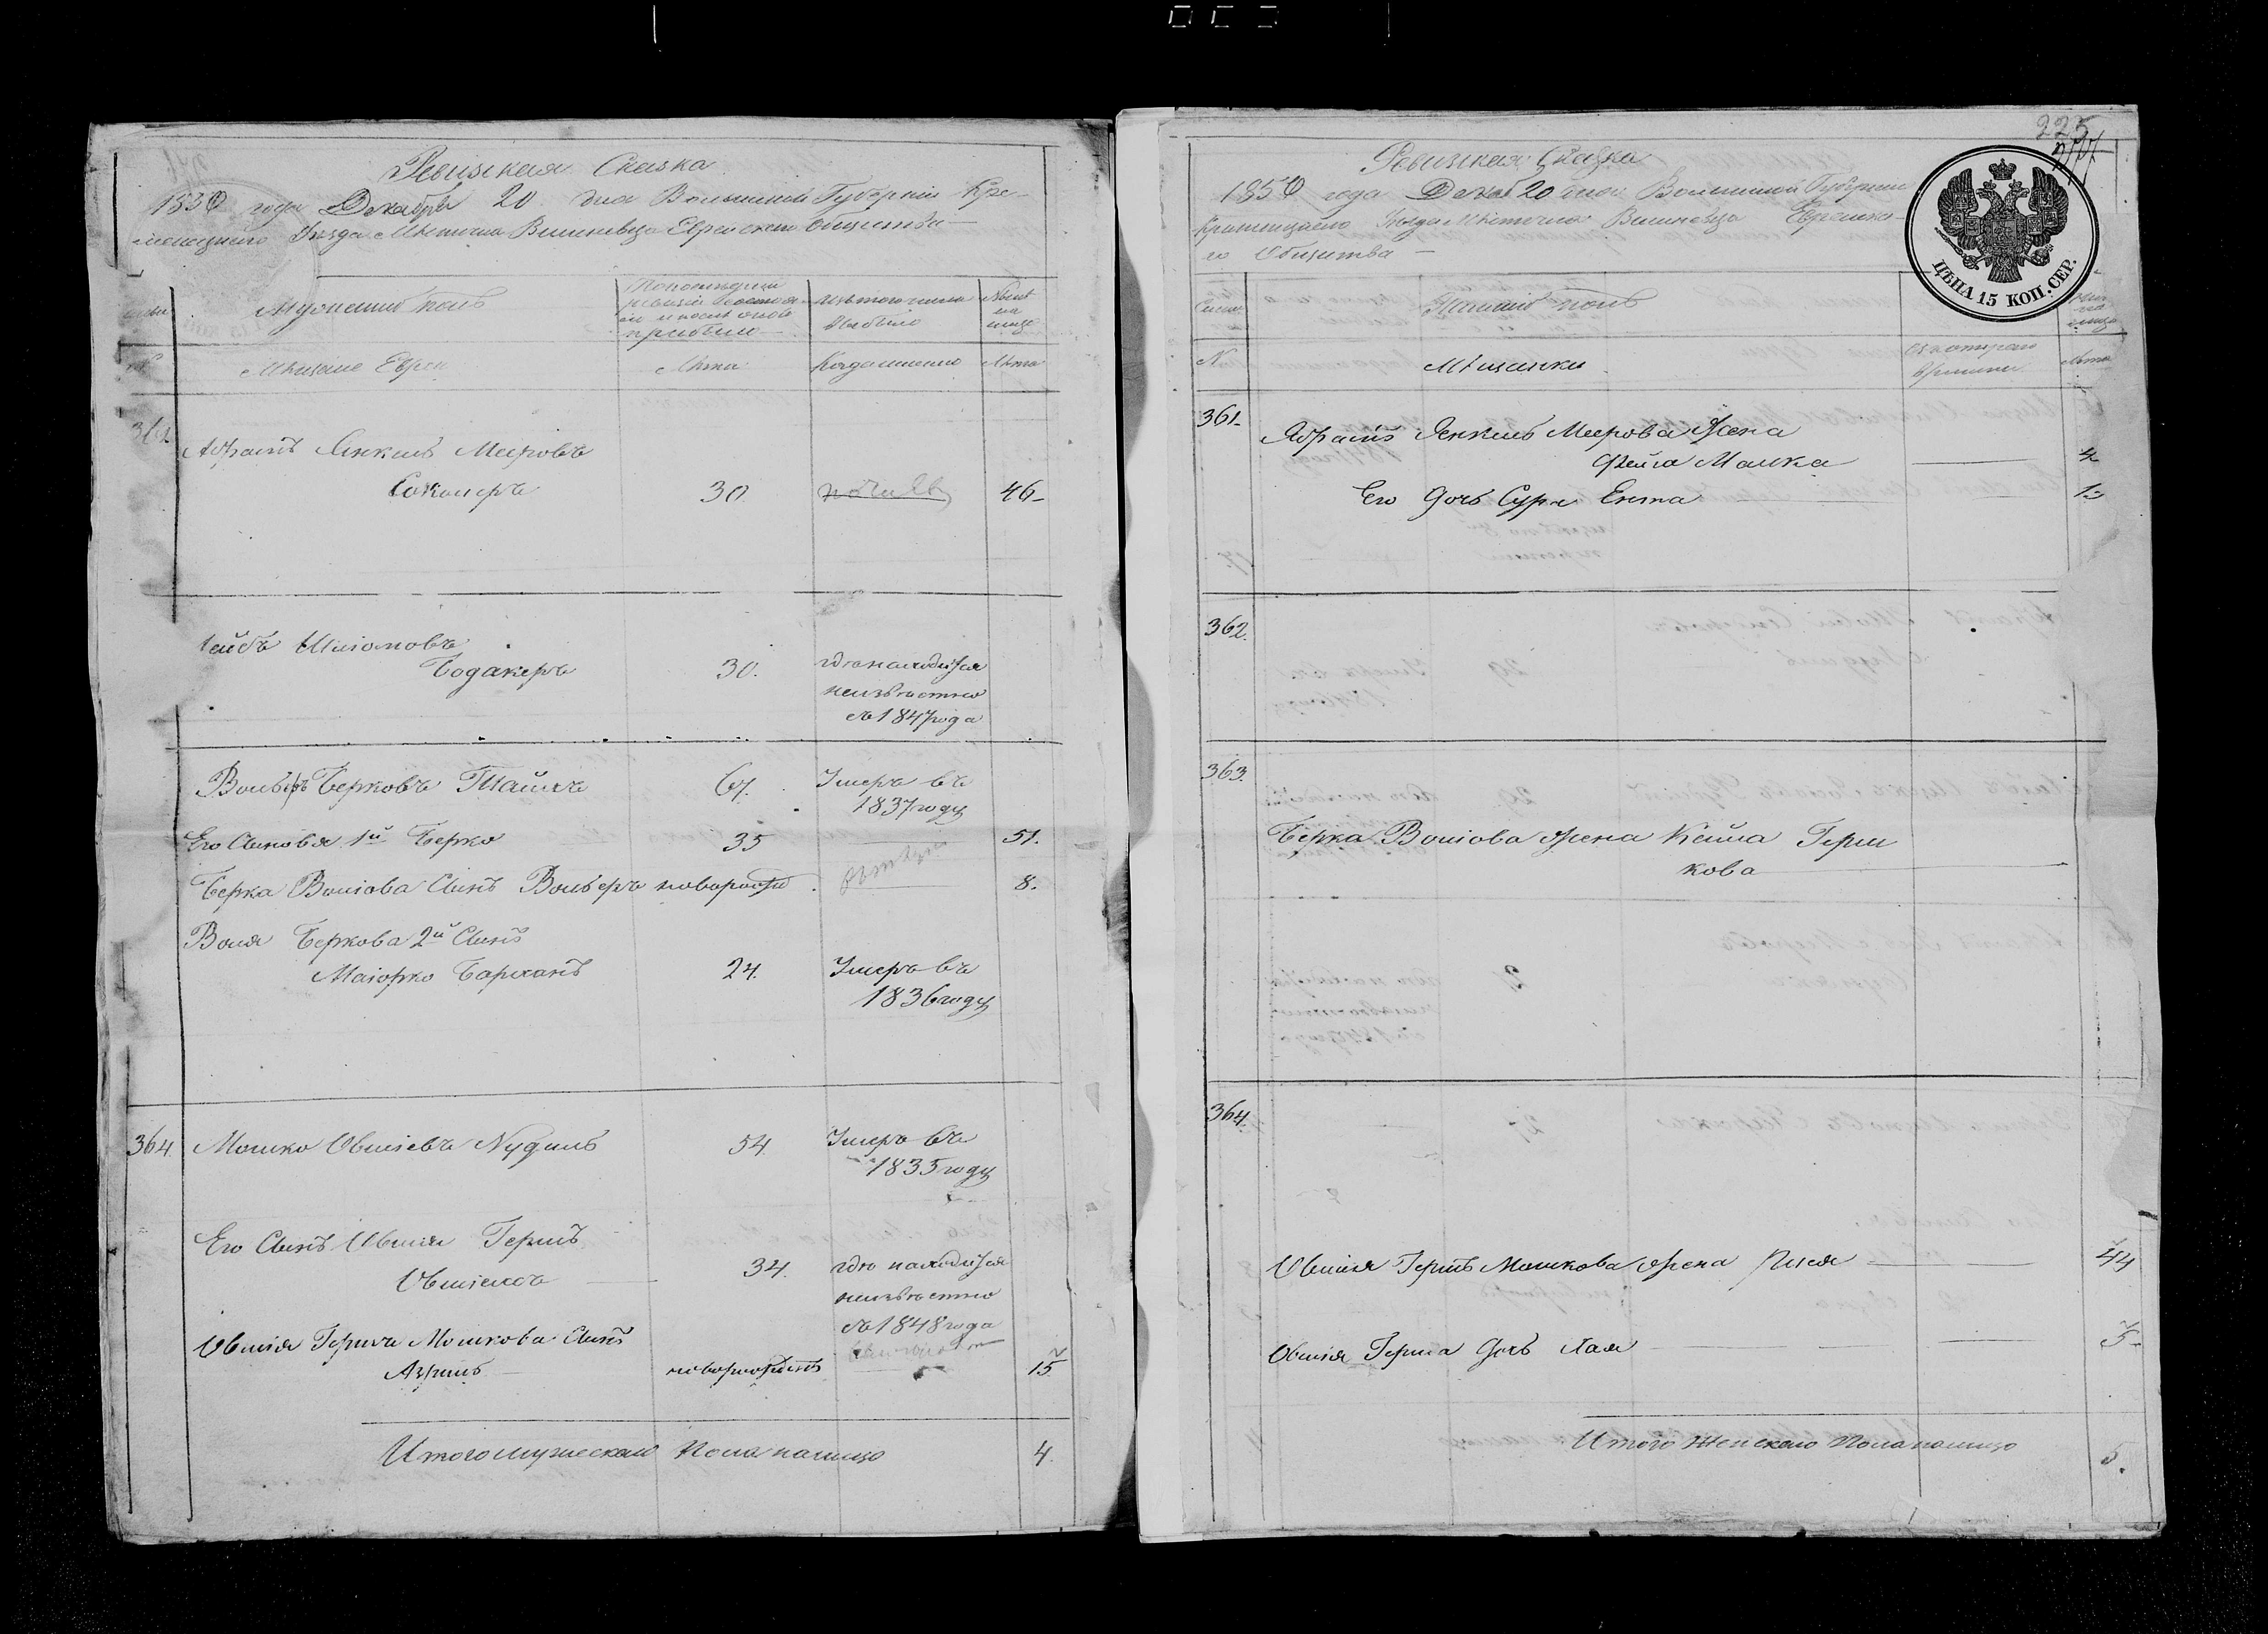 Ревизская Сказка
1850 года Декабря 20 дня Волынской Губернии Кре-
менецкого Уезда Местечка Вишневца Еврейского Общества
Мужеский полъ
По последней ревизіи состояло и после оной прибыло
Изъ того числа выбыло
Ныне на лицо
Мещане Евреи
Лета
Когда именно
Лета
361
Абрамъ Янкель Мееровъ
30.
46
Лейбъ Шлiомовъ
Бодакеръ
30.
где находится
неизвестно
съ 1847 года
Вольфъ Берковъ
67.
Умеръ въ
1837 году
Его Сыновья 1й Берко
35
51.
Берка Волiова Сынъ Вольфъ новорожд
8.
Воля Беркова 2й Сынъ
Маіорко
24.
Умеръ въ
1836 году
364.
Мошко Овшіевъ Нудель
54.
Умеръ въ
1835 году
Его Сынъ Овшія Гершъ
34.
где находится
неизвестно
съ 1848 года
Овшія Герша Мошкова Сынъ
Азріиль
новорожденъ
15.
Итого мужескаго пола налицо
4.
225
Ревизская Сказка
1850 года Декаб 20 дня Волынской Губернии
Кременецкаго Уезда Местечка Вишневца Еврейска-
го Общества
ЦѢНА 15 КОП. СЕР.
Женский полъ
№
Мещанки
Лета
361.
Абрамъ Янкель Меерова Жена
Фейга Малка
Его Дочь Сура Ента
362.
363.
Берка Волiова жена Кейла Герш
кова
364.
Овшія Гершъ Мошкова жена Песя
44
Овшія Герша Дочь Хая
5
Итого Женскаго Пола налицо
5.